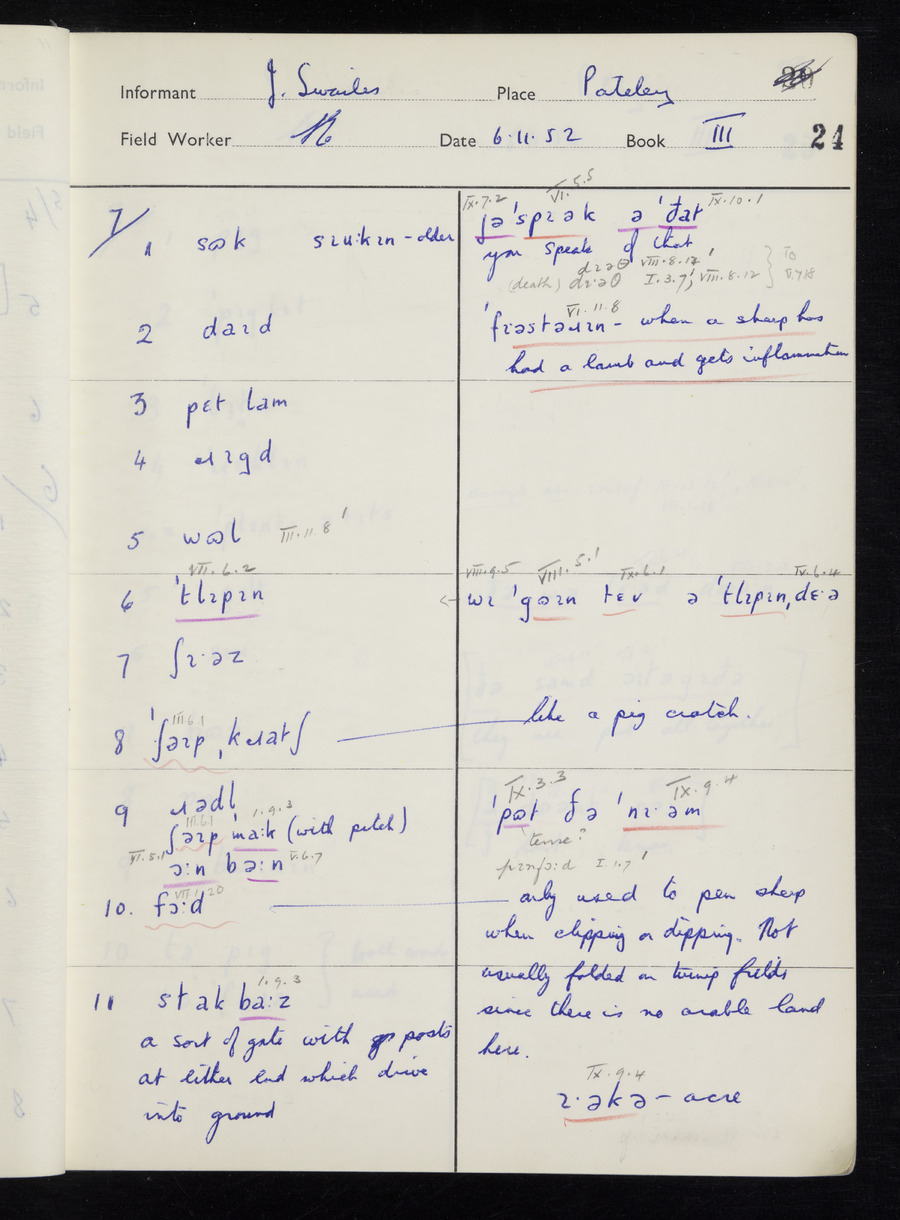 Informant J. Swailes Place Pateley
Field Worker Date 6.11.52 Book III 24
7/
1 sɷk sɪu·kɪn - older
2 daɪd
3 pɛt lam
4 ɹɪgd
5 wɷl III.11.8'
VII.6.2
6 'tlɪpɪn
7 ʃɪ·əz
III.6.1
8 'ʃəɪp ˌkɹatʃ
9 ɹədl
III.6.1 1.9.3
ʃəɪp ma:k (with pitch)
VI.5.1 ɔ:n bə:n V.6.7
VII.1.20
10. fɔ:d
1.9.3
11 stak ba:z
a sort of gate with posts
at either end which drive
into ground
IX.7.2 VI.5.5 IX.10.1
jə 'spɪək ə 'ðat
you speak of that
dɪəθ VIII.8.12'
(death) dɪ·əθ I.3.7', VIII.8.12 } To V.7.18
VI.11.8
'fɪəstəɹɪn - when a sheep has
had a lamb and gets inflammation
VIII.9.5 VIII.5.1 IX.6.1 IX.6.4
wɪ 'gəɪn tɛv ə 'tlɪpɪn,dɛ·ə
like a pig cratch.
IX.3.3 IX.9.4
'pɷt ðə 'nɪ·əm
tense?
pɪnfɔ:d I.1.7'
only used to pen sheep
when clipping or dipping. Not
usually folded on turnip fields
since there is no arable land
here.
IX.9.4
ɪ·əkə - acre